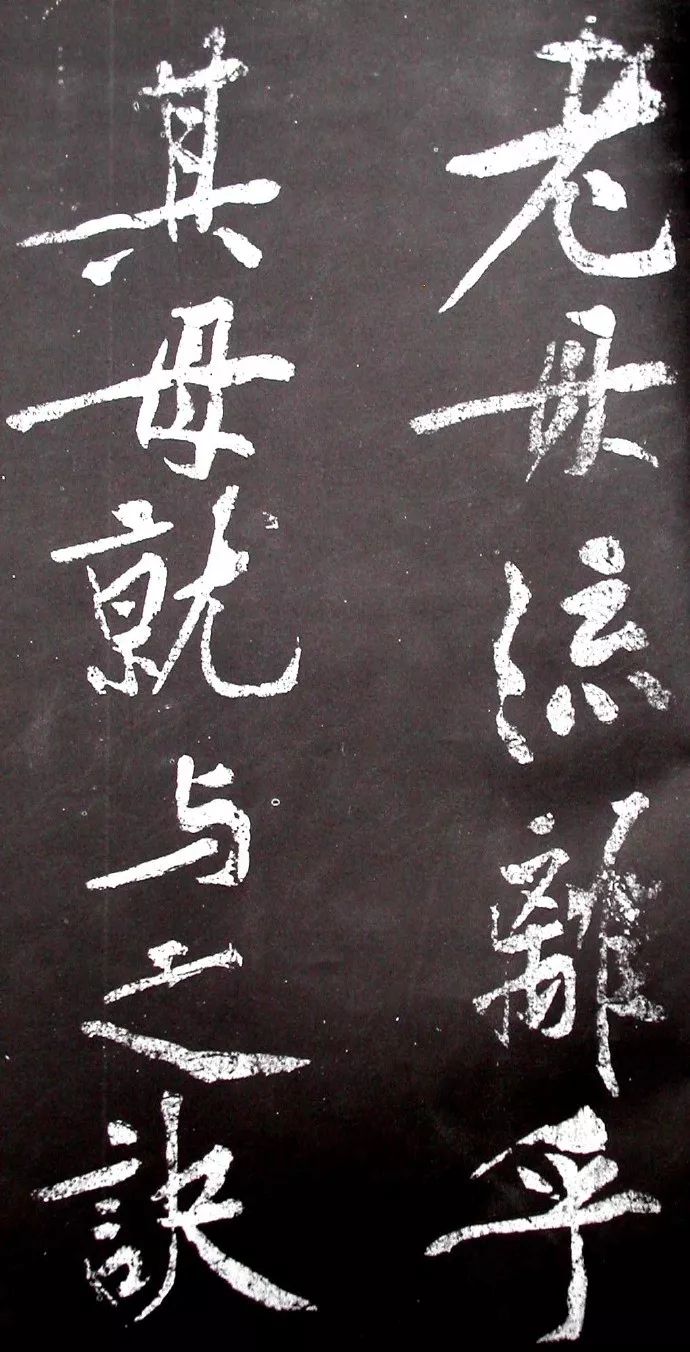 老母流離乎
其母就与之訣